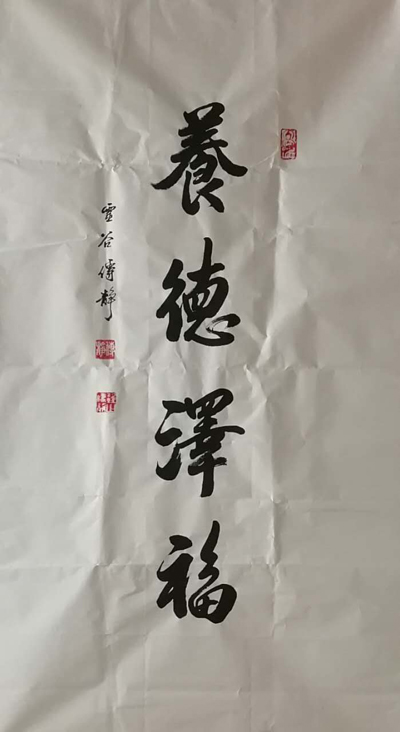 養德澤福
雪谷傅靜